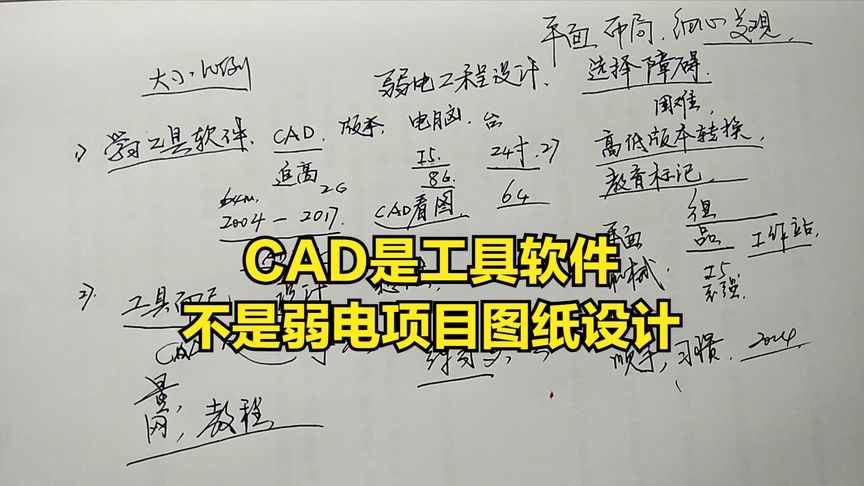 平面 布局, 细心 美观,
大小、比例
弱电工程设计, 选择障碍,
困难,
1) 学习工具软件, CAD, 版本, 电脑, 台
追高 I5, 24寸, 2)
8G, 高低版本转换,
2G 教育标记,
2004-2017, CAD看图, 64
组
平面 品 工作站,
机械, I5
CAD是工具软件
2). 工具 设计
不是弱电项目图纸设计
顺手, 习惯, 2004
量,
网, 教程